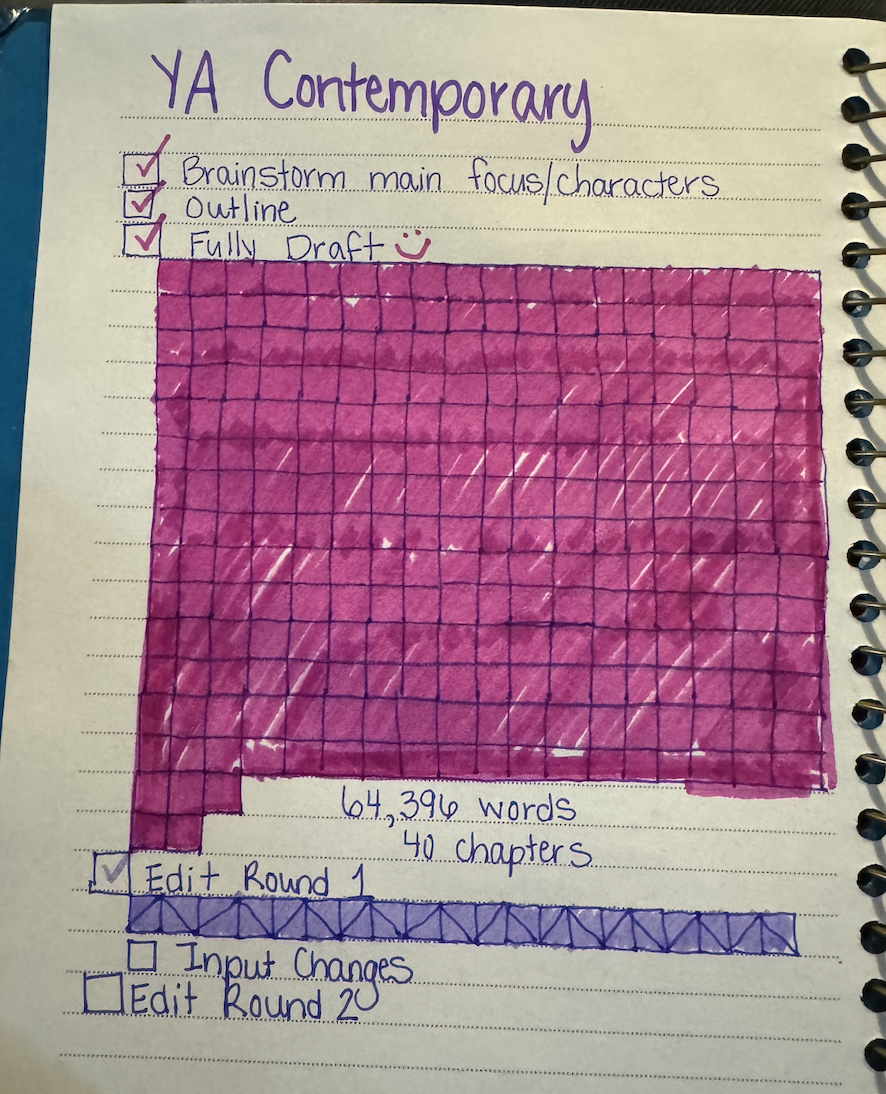 YA Contemporary
Brainstorm main focus/characters
Outline
Fully Draft
64,396 words
40 chapters
Edit Round 1
Input Changes
Edit Round 2